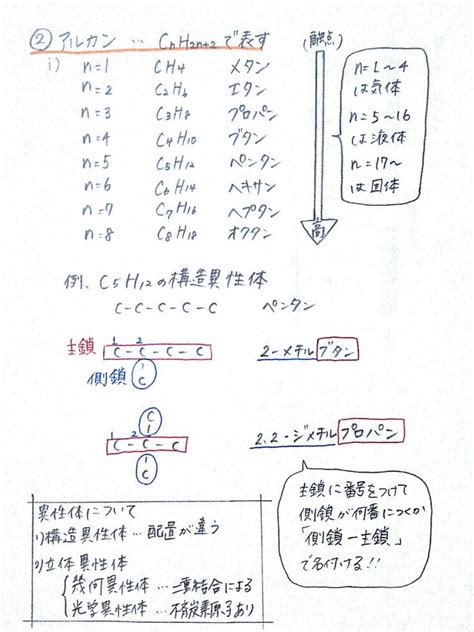 ② アルカン … CnH2n+2 で表す
i) n=1 CH4 メタン
n=2 C2H6 エタン
n=3 C3H8 プロパン
n=4 C4H10 ブタン
n=5 C5H12 ペンタン
n=6 C6H14 ヘキサン
n=7 C7H16 ヘプタン
n=8 C8H18 オクタン
高
n=1~4
は気体
n=5~16
は液体
n=17~
は固体
例、C5H12の構造異性体
C-C-C-C-C ペンタン
1 2
主鎖 C-C-C-C 2-メチルブタン
側鎖 C
C
1 2
C-C-C 2,2-ジメチルプロパン
C
主鎖に番号をつけて
側鎖が何番につくか
「側鎖-主鎖」
で名付ける!!
異性体について
1)構造異性体…配置が違う
2)立体異性体
幾何異性体…二重結合による
光学異性体…不斉炭素原子あり